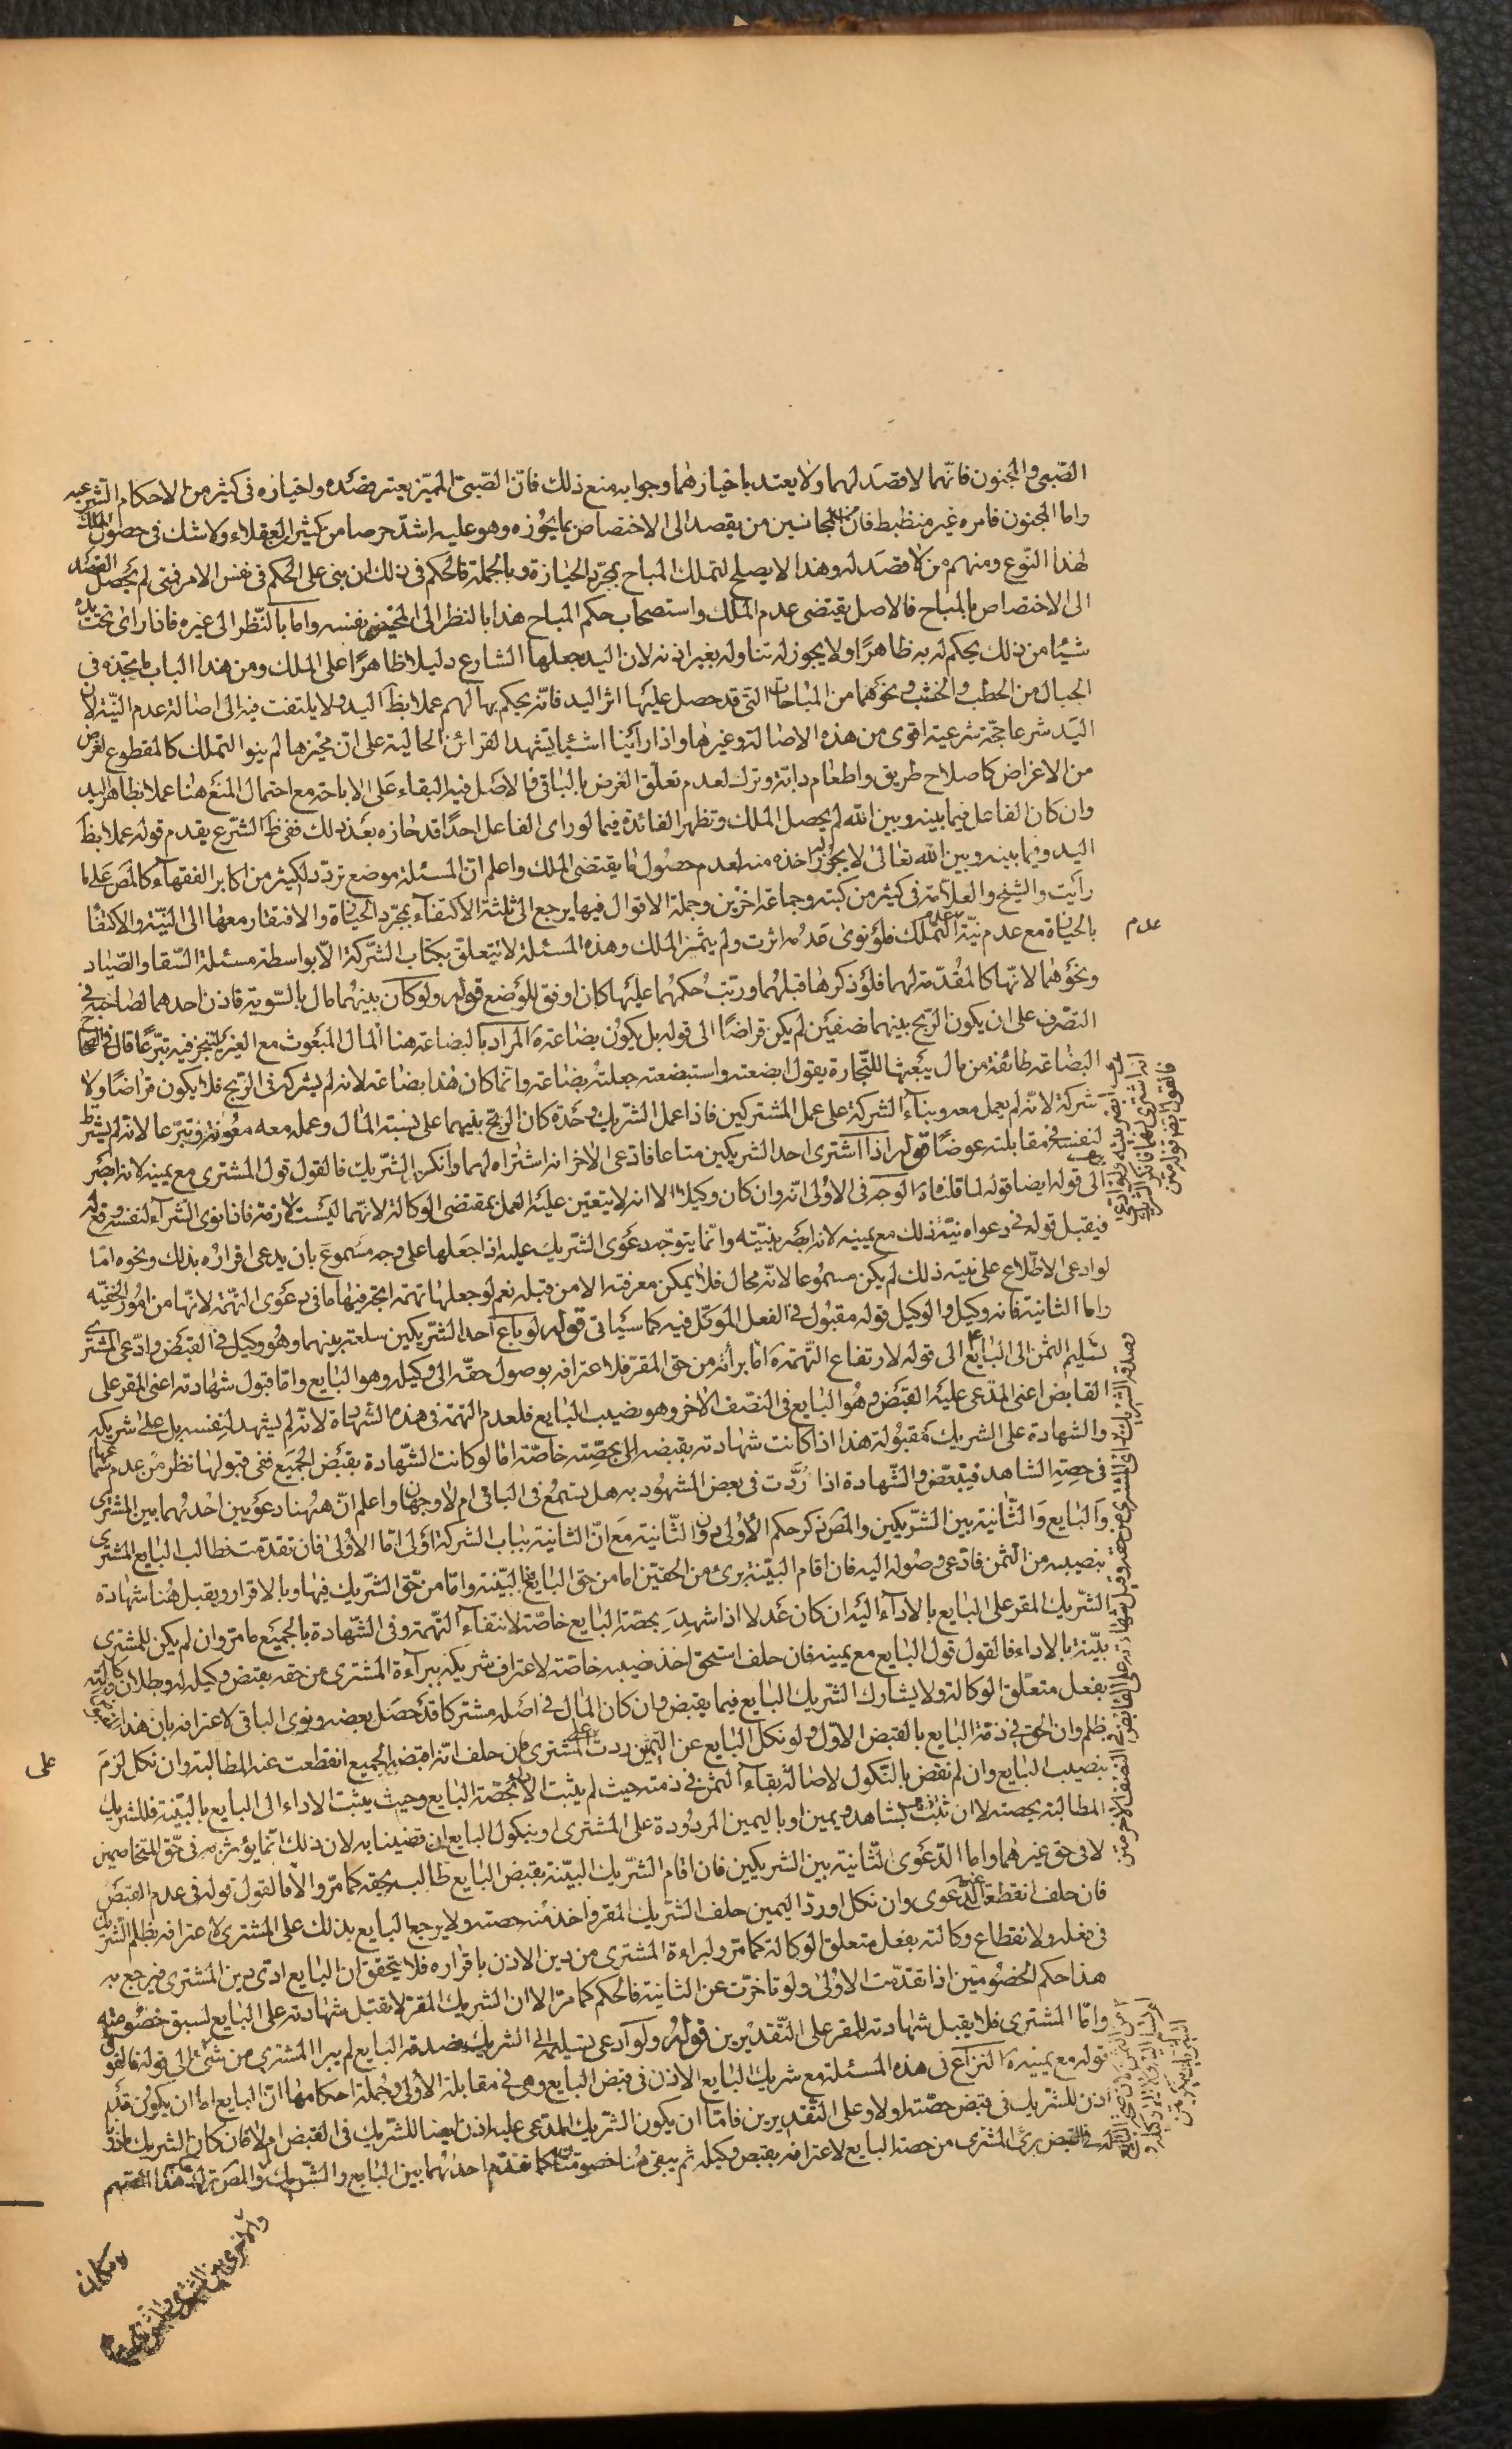 الصّبى والمجنون فانّهما لا قصَد لهما ولا يعتد باختيارهما وجوابه منع ذلك فانّ الصّبىّ المميّز يعتبر قصَده واختياره فى كثير من الاحكام الشرعيه
واما المجنون فامره غير منظبط فان من المجانين من يقصد الى الاختصاص بما يحُوزه وهو عليه اشدّ حرصا من كثير من العقلاء ولا شك فى حصُول الملك
لهذا النّوع ومنهم من لا قصَد له وهذا لا يصلح لتملك المباح بمجرّد الحيازة وبالجملة فالحكم فى ذلك ان بنى على الحكم فى نفس الامر فمتى لم يحصل القصد
الى الاختصاص بالمباح فالاصل يقتضى عدم الملك واستصحاب حكم المباح هذا بالنظر الى المحيز نفسه واما بالنّظر الى غيره فاذا راى تحت يده
شيئا من ذلك يحكم له به ظاهرًا ولا يجوز له تناوله بغير اذنه لان اليد جعلها الشارع دليلا ظاهرًا على الملك ومن هذا الباب ما يتجدد فى
الجبال من الحطب والخشب ونحوهما من المباحات التى قد حصل عليها اثر اليد فانّه يحكم بها لهم عملا بظاهر اليد ولا يلتفت فيه الى اصالة عدم النيّة لان
اليَد شرعا حجّة شرعية اقوى من هذه الاصالة وغيرها واذا راينا اشيئا يشهد القرائن الحالية على انّ محيزها لم ينوا التملك كالمقطوع لغرض
من الاغراض كاصلاح طريق واطعام دابّة وترك لعدم تعلّق الغرض بالباقى فالاصَل فيه البقاء عَلى الاباحة مع احتمال المنَع هنا عملا بظاهر اليد
وان كان الفاعل فيما بينه وبين الله لم يحصل الملك وتظهر الفائدة فيما لو راى الفاعل احدًا قد حازه بعَد ذلك ففى ظاَ الشّرع يقدم قوله عملا بظاَ
اليد وفيما بينه وبين الله تعَالىٰ لا يجُوز له اخذه منه لعدم حصُول ما يقتضى الملك واعلم انّ المسئلة موضع تردّد لكثير من اكابر الفقهاء كالمصَ عَلى ما
رايَت والشيخ والعلاّمة فى كثير من كتبه وجماعة اخرَين وجملة الاقوال فيها يرجع الى ثلثة الاكتفآء بمجرّد الحيازة والافتقار معها الى النيّة والاكتفا
بالحيازة مع عدم نيّة عدم التملّك فلو نوى عَدمُه اثرت ولم يثمر الملك وهذه المسئلة لا يتعلّق بكتاب الشّركة الاّ بواسطة مسئلة السّقا والصّياد
عدم
ونحوَهما لانّها كالمقُدّمة لهما فلو ذكرها قبلهُما ورتبّ حُكمُهما عليها كان اوفق للوَضع قوله ولو كان بينهُما مال بالسّوية فاذن احدهما لصاحبه فى
التصّرف على ان يكون الرّبح بينهما نصفيَن لم يكن قراضًا الى قوله بل يكون بضاعة المراد بالبضاعة هنا المال المبعَوث مع الغير ليتجر فيه تبرّعًا قال فى الصحاح
البضاعة طائفة من مال يَبعثها للتّجارة يقول ابضعته واستبضعته جعلتهُ بضاعة وانّما كان هٰذا بضاعة لانه لم يشركه فى الرّبح فلا يكون قراضًا ولا
شركة لانّه لم يعمل معه وبناءَ الشركة على عمل المشتركين فاذا عمل الشّريك وحَدة كان الربح بينهما على نسبته المال وعمله معه معُونة وتبرّعا لانه لم يشترط
لنفسه فى مقابلته عوضًا قوله اذا اشترى احد الشريكين متاعا فادّعى الاخر انه اشتراه لهما وانكر الشّريك فالقول قول المشترى مع يمينه لانه ابصَر
الى قوله ايضا قوله لما قلناه الوجه فى الاوُلى انّه وان كان وكيلا الا انه لا يتعيّن عليَه العمل بمقتضى الوكالة لانّها ليسَت لازمة فاذا نوى الشّراء لنفسه وقع له
فيقبل قوله فى دعواه نيّة ذلك مع يمينه لانه ابصَر بنيّته وانّما يتوجّه دعَوى الشّريك عليه اذا جعَلها على وجه مسَموع بان يدعى اقراره بذلك ونحوه امّا
لو ادعى الاطّلاع على نيته ذلك لم يكن مسمُوعا لانّه محال فلا يمكن معرفته الا من قبله نعم لو جعلها تهمة انجّر فيها ما فى دعَوى التهمة لانّها من الامُور الخفيّة
واما الثانية فانه وكيل والوكيل قوله مقبُول فى الفعل الموكّل فيه كما سيَاتى قوله لو باع احد الشّريكين سلعة بينهما وهُو وكيل فى القبض وادّعى المشترى
تسَليم الثمن الى البايع الى قوله لارتفاع التّهمة امّا برائته من حق المقر فلاعترافه بوصول حقه الى وكيله وهو البايع وامّا قبول شهادته اعنى المقر على
القابض اعنى المدّعى عليَه القبَض وهُو البايع فى النصّف الاخر وهو نصيب البايع فلعدم التهمة فى هذه الشهادة لانّه لم يشهد لنفسه بل على شريكه
والشهادة على الشريك مَقبُولة هذا اذا كانت شهادته بقبضه الى بحصّته خاصّة امّا لو كانت الشّهادة بقبَض الجميَع ففى قبولها نظر من عدم سماعها
فى حصِّة الشاهد فيتبعّض والشّهادة اذا رُدَّت فى بعض المشهُود به هل يسَمع فى الباقى ام لا وجهان واعلم انّ ههُنا دعوَيين احدهُما بين المشترى
والبَايع والثّانية بين الشّريكين والمصَ ذكر حكم الاوُلى دون الثّانية مَع انّ الثانية بباب الشركة اوَلى امّا الاولىٰ فان تقدّمت فطالب البايع المشترى
بنصيبه من الثّمن فادّعى وصُوله اليه فان اقام البيّنة برئ من الحقّين اما من حق البايع فبالبيّنة وامّا من حقّ الشّريك فبها وبالاقرار ويقبل هُنا شهادة
الشّريك المقر على البايع بالاداء اليَه ان كان عَدلا اذا شهدَ بحصّة البايع خاصّة لانتفاء التهمة وفى الشّهادة بالجميَع ما مرّ وان لم يكن للمشترى
بيّنة بالاداء فالقول قول البايع مع يمينه فان حلف استحق اخذ نصيبه خاصّة لاعتراف شريكه ببراءة المشترى من حقه بقبض وكيله له وبطلان وكالته
بفعل متعلّق الوكالة ولا يشارك الشّريك البايع فيما يقبض وان كان المال فى اصَله مشتركا قد حصَل بعضه ونوى الباقى لاعترافه بان هذا
يظلم وان الحق فى ذمّة البايع بالقبض الاوّل ولو نكل البايع عن اليمين ردت على المشترى فان حلف انّه اقبضه الجميع انقطعت عنه المطالبة وان نكل لزمَ
على
بنصيب البايع وان لم نقض بالنّكول لاصالة بقاءَ الثمن فى ذمته حيث لم يثبت الاداء بحصّة البايع وحيث يثبت الاداء الى البايع بالبيّنة فللشريك
المطالبة بحصته لا ان ثبت بشاهد ويمين او باليمين المردُودة على المشترى او بنكول البايع ان قضينا به لان ذلك انّما يؤثر فى حّق المتخاصمين
لا فى حق غيرهما واما الدّعوَى الثّانية بين الشريكين فان اقام الشّريك البيّنة بقبض البايع طالبه بحقه كما مرّ والاّ فالقول قوله فى عدم القبض
فان حلف انقطعت الدّعَوى وان نكل او ردّ اليمين حلف الشّريك المقر واخذ منه حصته ولا يرجع البايع بذلك على المشترى لاعترافه بظلم الشّريك
فى فعله ولانقطاع وكالته بفعل متعلق الوكالة كما مرّ ولبراءة المشترى من دين الاذن باقراره فلا يتحقق ان البايع ادّى دين المشترى فيرجع به
هذا حكم الخصُومتين اذا تقدّمت الاوُلىٰ ولو تاخرّت عن الثانية فالحكم كما مرّ الا ان الشريك المقر لا تقبل شهادته على البايع لسبق خصُومته
وامّا المشترى فلا يقبل شهادته للمقر على التّقديرين قولُهُ ولو ادعى تسليمه الى الشريك فصدقه البايع لم يبرا المشترى من شئ الى قوله فالقول
قوله مع يمينه النزاع فى هذه المسئلة مع شريك البايع الاذن فى قبض البايع وهى فى مقابلة الاولى وجُملة احكامها انّ البايع امّا ان يكون قد
اذن للشّريك فى قبض حصّته او لا وعلى التّقديرين فامّا ان يكون الشّريك المدّعى عليه اذن ايضا للشّريك فى القبض ام لا فان كان الشريك ماذونًا
له فى القبض برئ المشترى من حصة البايع لاعترافه بقبض وكيله ثم يبقى هُنا خصومتان كما تقدّم احدٰهما بين البايع والشّريك والمصَ ترك هذا القسَم